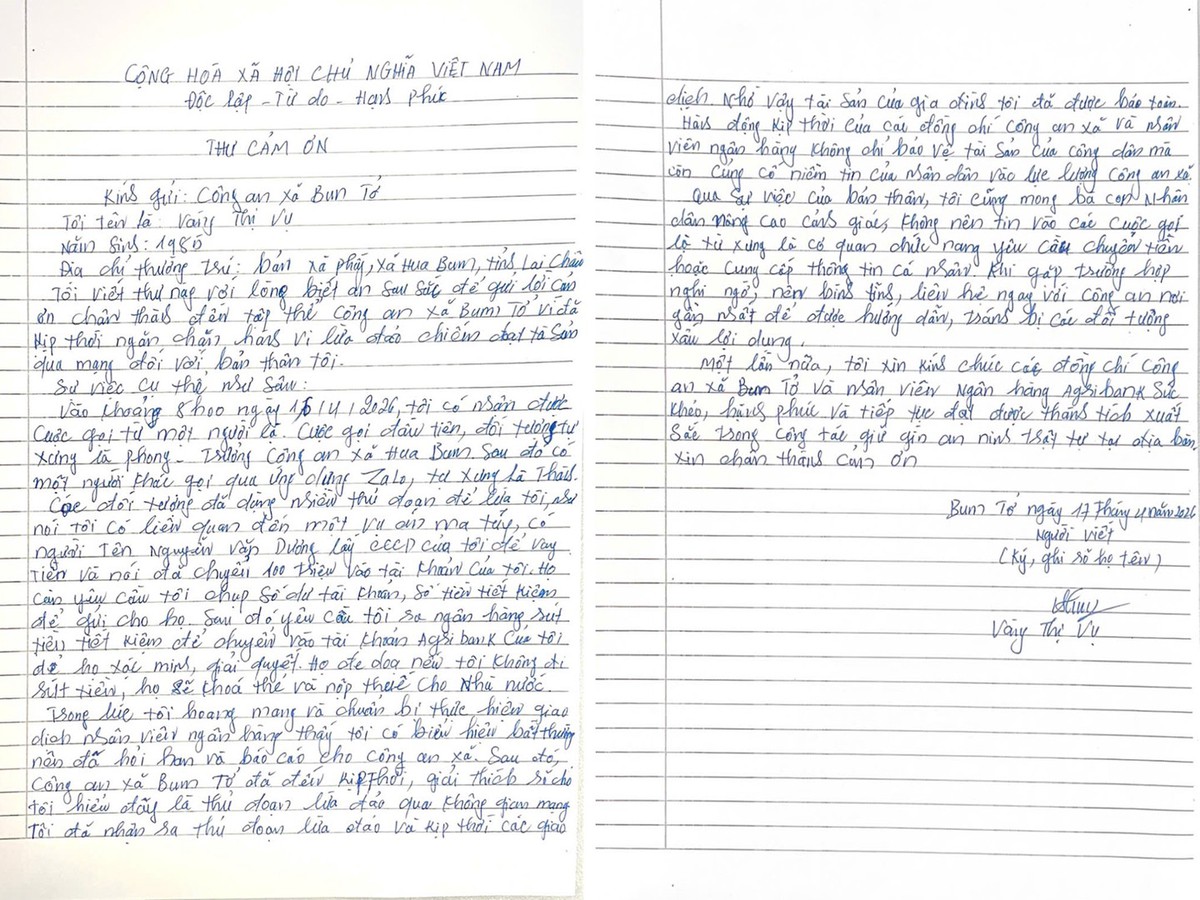 CỘNG HOÀ XÃ HỘI CHỦ NGHĨA VIỆT NAM
Độc lập - Tự do - Hạnh phúc
THƯ CẢM ƠN
Kính gửi: Công an xã Bum Tở
Tôi tên là: Vàng Thị Vụ
Năm sinh: 1985
Địa chỉ thường trú: bản xã phấy, xã Hua Bum, tỉnh Lai Châu
Tôi viết thư này với lòng biết ơn sâu sắc để gửi lời cảm
ơn chân thành đến tập thể Công an xã Bum Tở vì đã
kịp thời ngăn chặn hành vi lừa đảo chiếm đoạt tà sản
qua mạng đối với bản thân tôi.
Sự việc cụ thể như sau:
Vào khoảng 8h00 ngày /4/2026, tôi có nhận được
cuộc gọi từ một người lạ. Cuộc gọi đầu tiên, đối tượng tự
xưng là phong - Trưởng Công an xã Hua Bum Sau đó có
một người khác gọi qua ứng dụng Zalo, tự xưng là Thành.
Các đối tượng đã dùng nhiều thủ đoạn để lừa tôi, như
nói tôi có liên quan đến một vụ án ma túy, có
người Tên Nguyễn Văn Dương lấy CCCD của tôi để vay
tiền và nói đã chuyển 100 triệu vào tài khoản của tôi. Họ
còn yêu cầu tôi chụp số dư tài khoản, số tiền tiết kiệm
để gửi cho họ. Sau đó yêu cầu tôi ra ngân hàng rút
tiền tiết kiệm để chuyển vào tài khoản Agribank của tôi
để họ xác minh, giải quyết. Họ đe doạ nếu tôi không đi
rút tiền, họ sẽ khoá thẻ và nộp thuế cho Nhà nước.
Trong lúc tôi hoang mang và chuẩn bị thực hiện giao
dịch nhân viên ngân hàng thấy tôi có biểu hiện bất thường
nên đã hỏi han và báo cáo cho công an xã. Sau đó,
Công an xã Bum Tở đã đến kịp thời, giải thích rõ cho
tôi hiểu đây là thủ đoạn lừa đảo qua không gian mạng
Tôi đã nhận ra thủ đoạn lừa đảo và kịp thời các giao
dịch. Nhờ vậy tài sản của gia đình tôi đã được bảo toàn.
Hành động kịp thời của các đồng chí công an xã và nhân
viên ngân hàng không chỉ bảo vệ tài sản của công dân mà
còn củng cố niềm tin của nhân dân vào lực lượng công an xã.
Qua sự việc của bản thân, tôi cũng mong bà con Nhân
dân nâng cao cảnh giác, không nên tin vào các cuộc gọi
lạ tự xưng là cơ quan chức năng yêu cầu chuyển tiền
hoặc cung cấp thông tin cá nhân. Khi gặp trường hợp
nghi ngờ, nên bình tĩnh, liên hệ ngay với công an nơi
gần nhất để được hướng dẫn, tránh bị các đối tượng
xấu lợi dụng.
Một lần nữa, tôi xin kính chúc các đồng chí Công
an xã Bum Tở và nhân viên Ngân hàng Agribank sức
khỏe, hạnh phúc và tiếp tục đạt được thành tích xuất
sắc trong công tác giữ gìn an ninh trật tự tại địa bàn.
xin chân thành cảm ơn
Bum Tở ngày 17 tháng 4 năm 2026
Người viết
(Ký, ghi rõ họ tên)
Vàng Thị Vụ